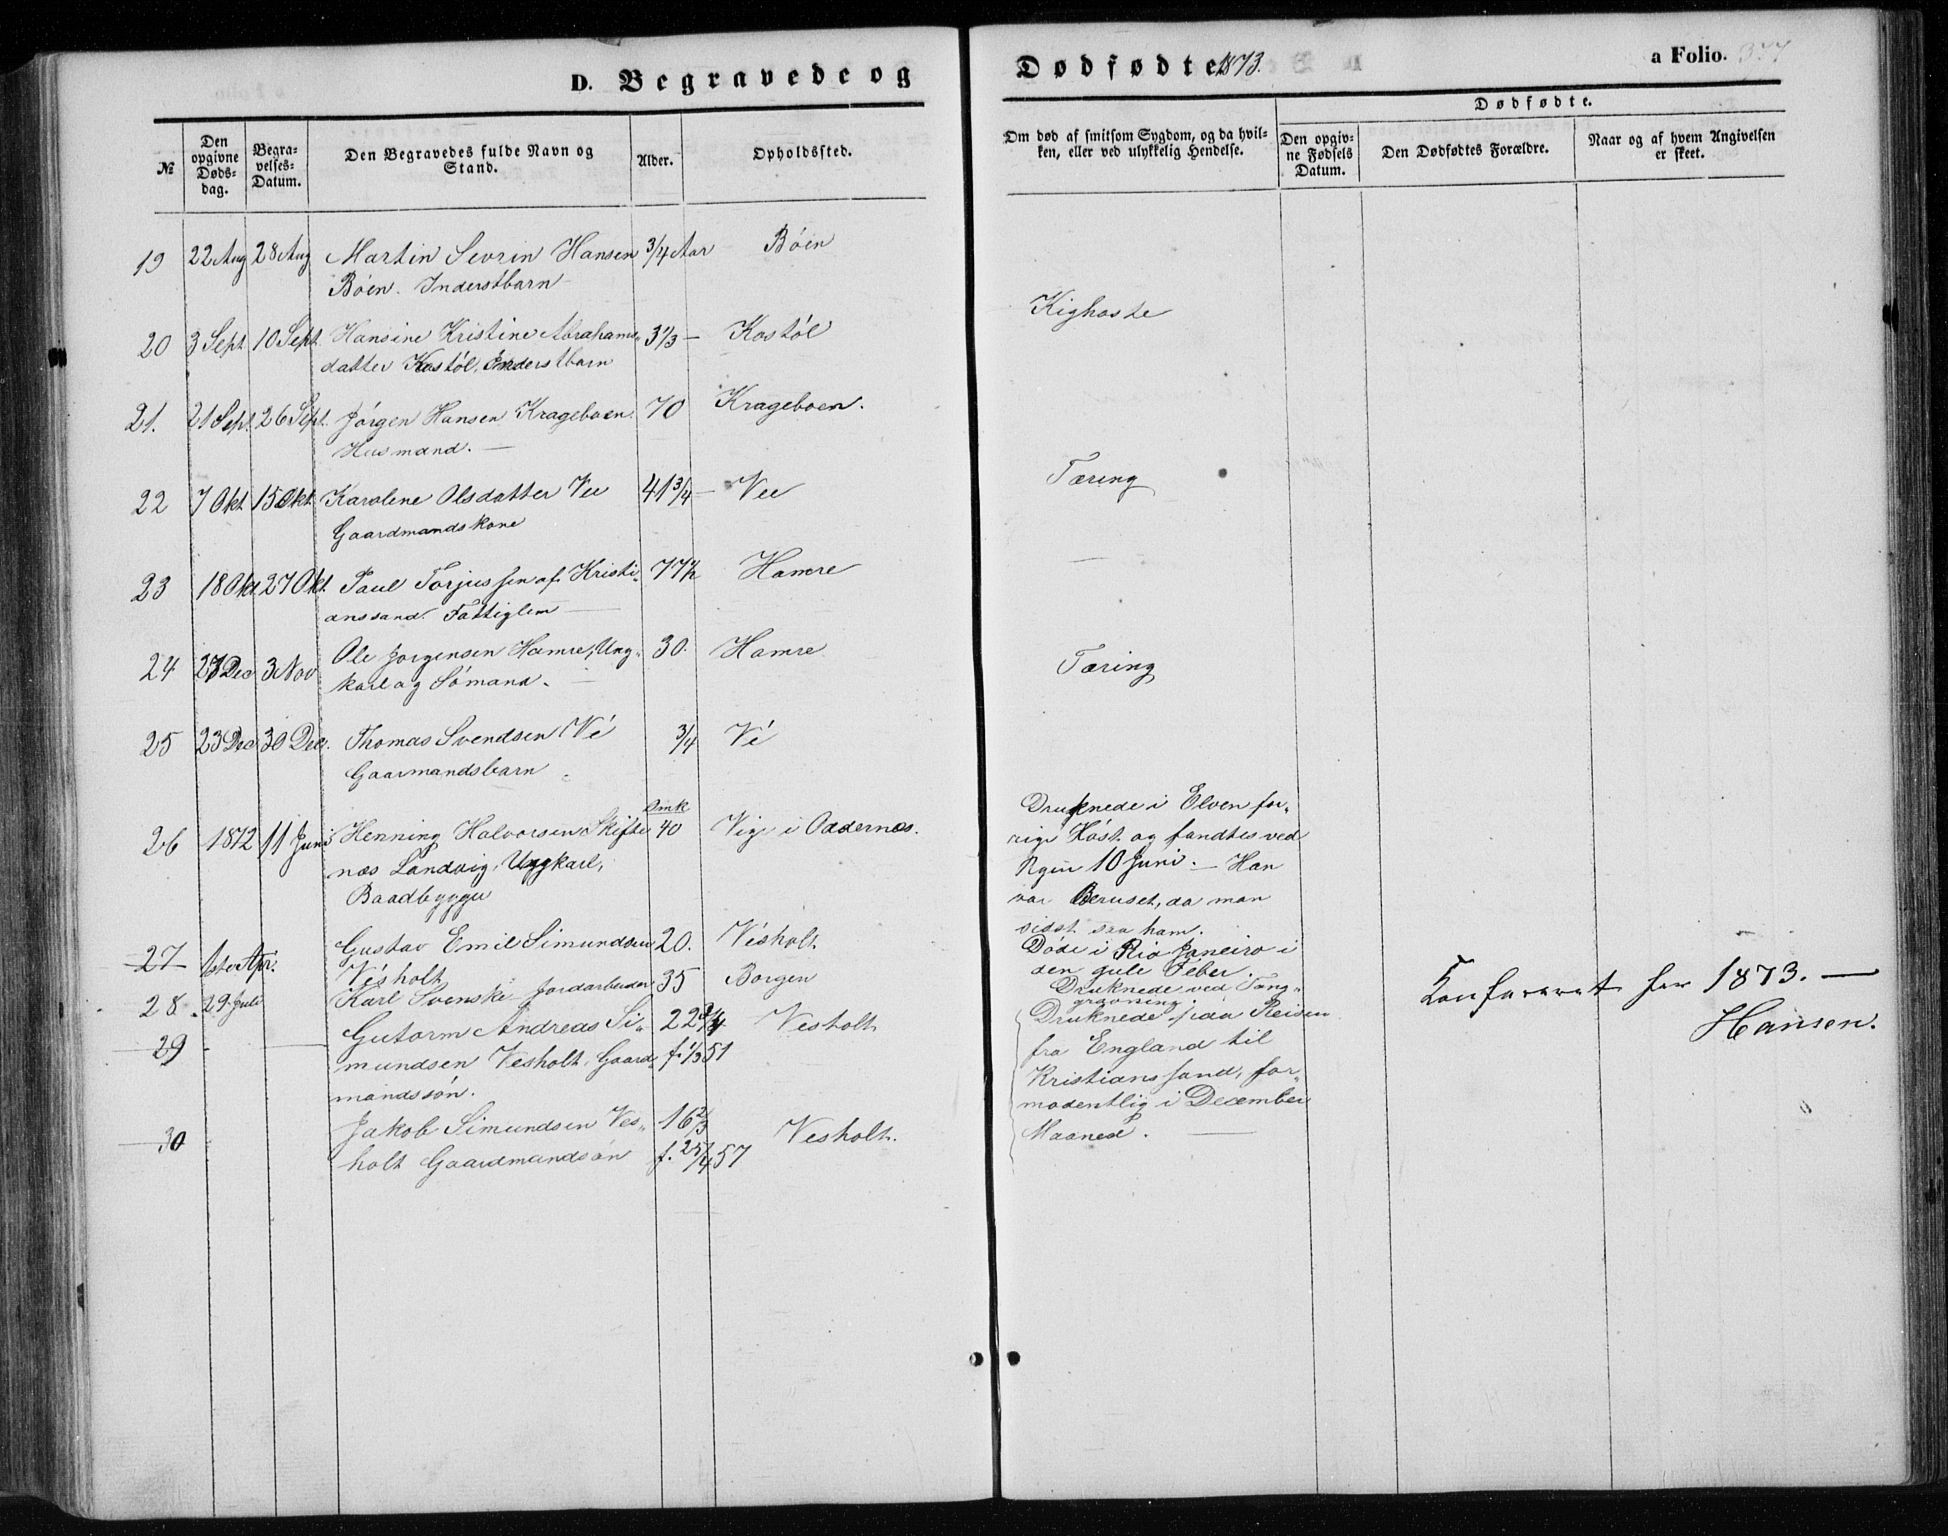 D. Begravede og Dødfødte 1873. a Folio. 377
Dødfødte.
№
Den opgivne Døds-dag.
Begra-velses-Datum.
Den Begravedes fulde Navn og Stand.
Alder.
Opholdssted.
Om død af smitsom Sygdom, og da hvil-ken, eller ved ulykkelig Hendelse.
Den opgiv-ne Fødsels Datum.
Den Dødfødtes Forældre.
Naar og af hvem Angivelsen er skeet.
19 22 Aug 28 Aug Martin Sevrin Hansen 3/4 Aar Böen
Böen. Inderstbarn
Kighoste
20 3 Sept 10 Sept. Hansine Kristine Abrahams- 3 1/3 — Kostöl
datter Kostöl, Inderstbarn
21. 21 Sept. 26 Sept. Jörgen Hansen Krageboen. 70 Krageboen.
Husmand. —
22 7 Okt 15 Okt. Karolene Olsdatter Vee 41 3/4 — Vee Tæring
Gaardmandskone
23 18 Okt 27 Okt. Paul Torjussen af Kristi- 77 1/2 Hamre —
anssand. Fattiglem —
24 27 Dec 3 Nov Ole Jorgensen Hamre, Ung- 30. Hamre Tæring
karl og Sömand. —
25 23 Dec 30 Dec. Thomas Svendsen Vé 3/4 Vé
Gaarmandsbarn
26 1872 11 Juni Henning Halvorsen Skifte- Omk 40 Vige i Oddernæs.
næs Landvig, Ungkarl,
Baadbygger
Druknede i Elven for-
rige Höst og fandtes ved
10 Juni. — Han
var Beruset, da man
sidst saa ham.
27 1ste Apr. Gustav Emil Simundsen 20. Vésholt
Vésholt
Döde i Rio Janeiro i
den gule Feber.
28 29 Juli Karl Svenske Jordarbeider 35 Borgen
Druknede ved Tang-
gravning.
29 Gutorm Andreas Si- 22 3/4 Vesholt
mundsen Vesholt. Gaard- f. 1/3 51
mandssön.
Druknede paa Reisen
fra England til
Kristianssand, for-
modentlig i December
Maaned. —
30 Jakob Simundsen Ves- 16 2/3 Vesholt.
holt Gaardmandsön f. 25/4 57
Konfereret for 1873. —
Hansen.